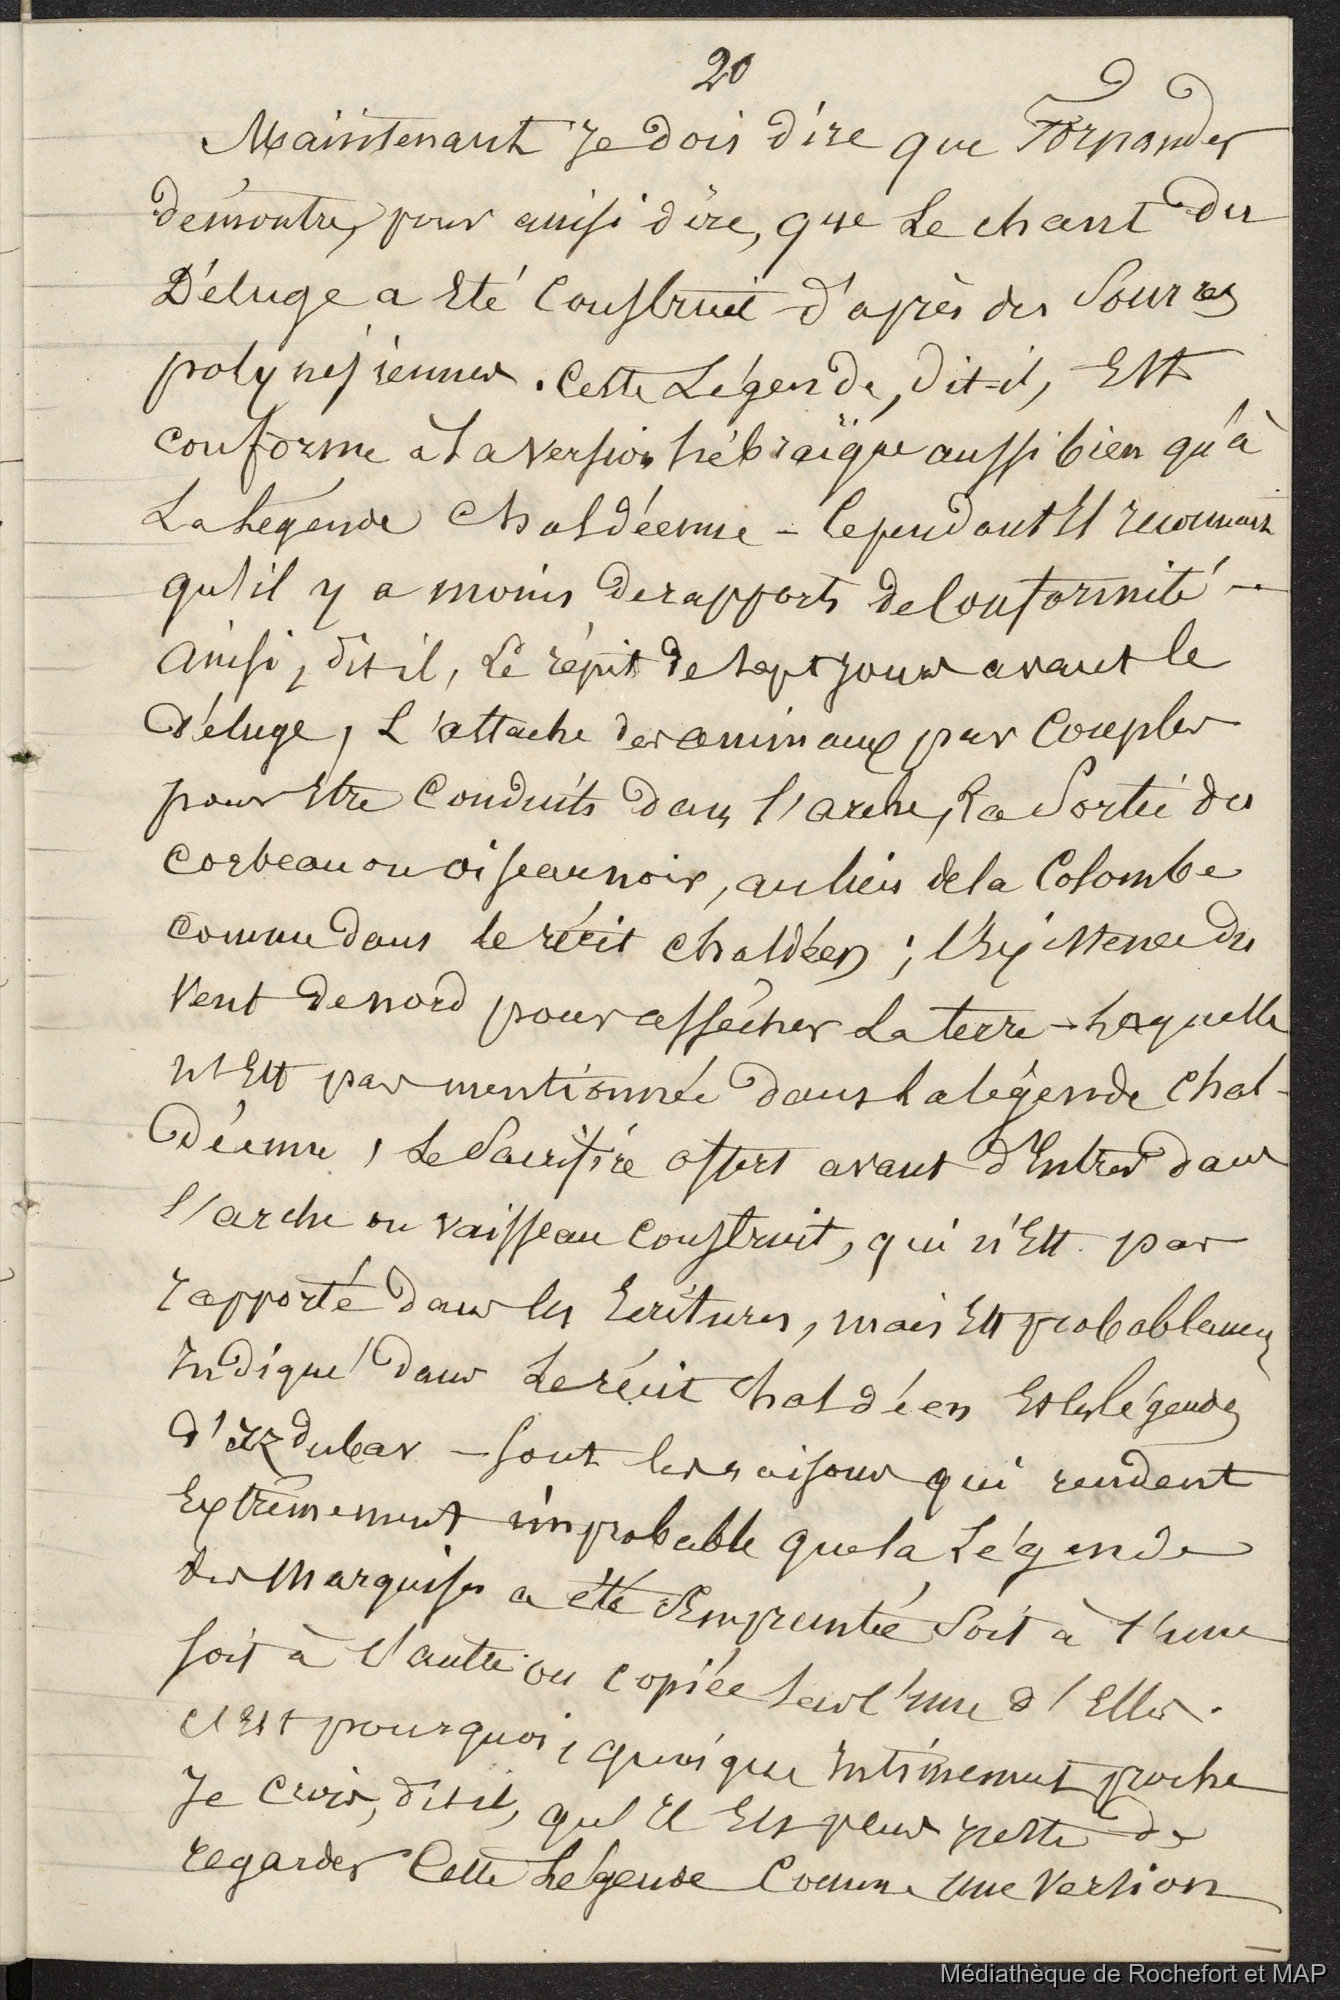 20
Maintenant je dois dire que Fornander
démontre, pour ainsi dire, que le chant du
Déluge a été construit d'après des sources
polynésiennes. Cette Légende, dit-il, est
conforme à la version hébraïque aussi bien qu'à
La Légende Chaldéenne - Cependant il reconnait
qu'il y a moins de rapports de conformité -
Ainsi, dit-il, Le répit de sept jours avant le
Déluge, L'attache des animaux par couples
pour être conduits dans l'arche, La Sortie du
corbeau ou oiseau noir, au lieu de la Colombe
comme dans le récit chaldéen ; l'existence du
vent de nord pour assécher La terre - Laquelle
n'est pas mentionnée dans la légende chal-
déenne, Le Sacrifice offert avant d'entrer dans
l'arche ou vaisseau construit, qui n'est pas
rapporté dans les Ecritures, mais est probablement
indiqué dans Le récit chaldéen et les légendes
d'Izdubar - sont les raisons qui rendent
extrêmement improbable que la Légende
des Marquises a été empruntée soit à l'une
soit à l'autre ou copiée sur l'une d'elles.
C'est pourquoi, quoique intimement proche
Je crois, dit-il, qu'il est plus juste de
regarder Cette Légende comme une version
Médiathèque de Rochefort et MAP